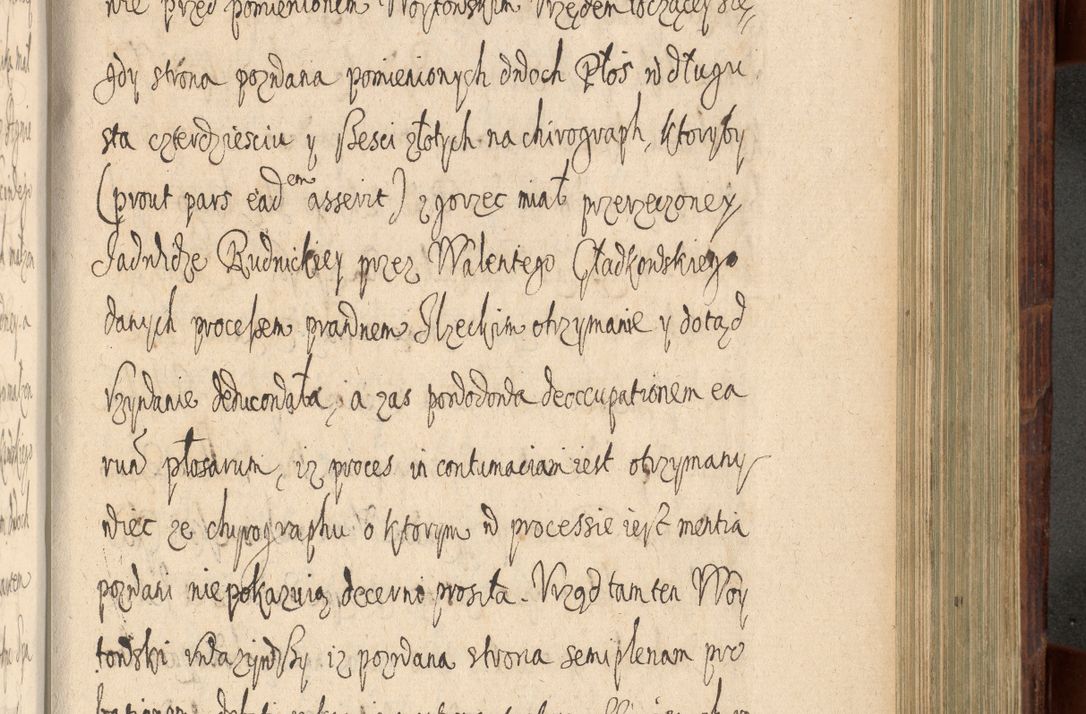 nie przed pomienionem Woytowskim Vrzędem toczącey się,
gdy strona pozwana pomienionych dwoch Płos w długu
sta czterdziesciu y szesci złotych na chirograph, ktoryby
(prout pars ead em asserit) zgorzec miał przerzeczoney
Jadwidze Rudnickiey przez Walentego Gładkowskiego
danych procesem prawnem Ilzeckim otrzymanie y dotąd
vzywanie deducowała, a zas powodowa deoccupationem ea
rum płosarum, iz proces in contumaciam iest otrzymany
wiec ze chyrographu o ktorym w processie iest mentia
pozwani nie pokazuią decerni prosiła. Vrząd tamten Woy
towski vwazywszy iz pozwana strona semiplenam pro